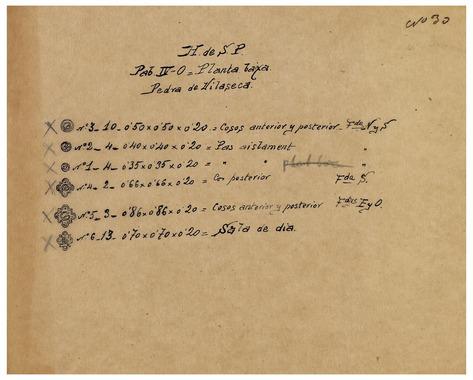 Nº 30
H. de S. P.
Pab IV-O = Planta baxa.
Pedra de Vilaseca.
Nº 3_10_0'50x0'50x0'20 = Cosos anterior y posterior Fdas N y S
Nº 2_4_0'40x0'40x0'20 = Pas aislament "
Nº 1_4_0'35x0'35x0'20 = " " "
Nº 4_2_0'66x0'66x0'20 = Cos posterior Fda S.
Nº 5_3_0'86x0'86x0'20 = Cosos anterior y posterior Fdas E y O.
Nº 6_13_0'70x0'70x0'20 = Sala de dia.